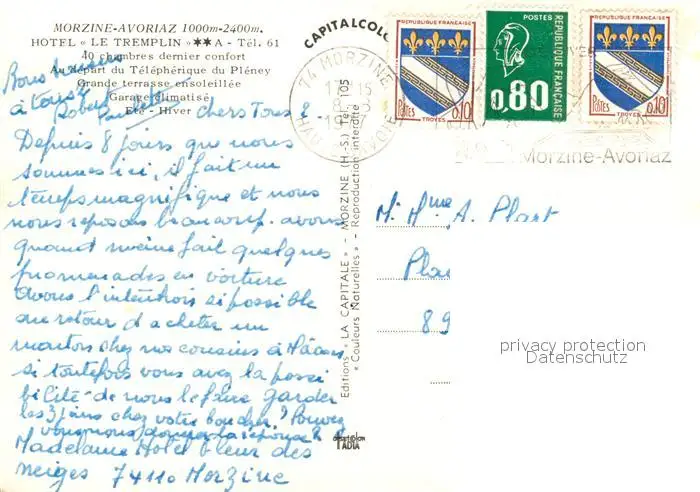 MORZINE-AVORIAZ 1000m-2400m.
HOTEL « LE TREMPLIN » ★★A - Tél. 61
40 chambres dernier confort
Au départ du Téléphérique du Pléney
Grande terrasse ensoleillée
Garage climatisé
Eté - Hiver
Bons baisers
à tous
Robert
chers Tous 2.
Depuis 8 jours que nous
sommes ici, il fait un
temps magnifique et nous
nous reposons beaucoup. avons
quand même fait quelques
promenades en voiture
avons l'intention si possible
au retour d'acheter un
mouton chez nos cousins à Mâcon
si toutefois vous avez la possi
bilité de nous le faire garder
les 3 jours chez votre boucher ? Pouvez
vous nous donner la réponse
Madelaine Hotel fleur des
neiges 74110 Morzine
CAPITALCOLO
Editions "LA CAPITALE" - MORZINE (H.-S.) Tél. 105
« Couleurs Naturelles » - Reproduction interdite
74 MORZINE
15
HAUTE SAVOIE
REPUBLIQUE FRANÇAISE
Postes 0,10
TROYES
POSTES
REPUBLIQUE FRANÇAISE
0.80
REPUBLIQUE FRANÇAISE
Postes 0,10
TROYES
Morzine-Avoriaz
M. Mme A. Plant
Pla
89
privacy protection
Datenschutz
IADIA